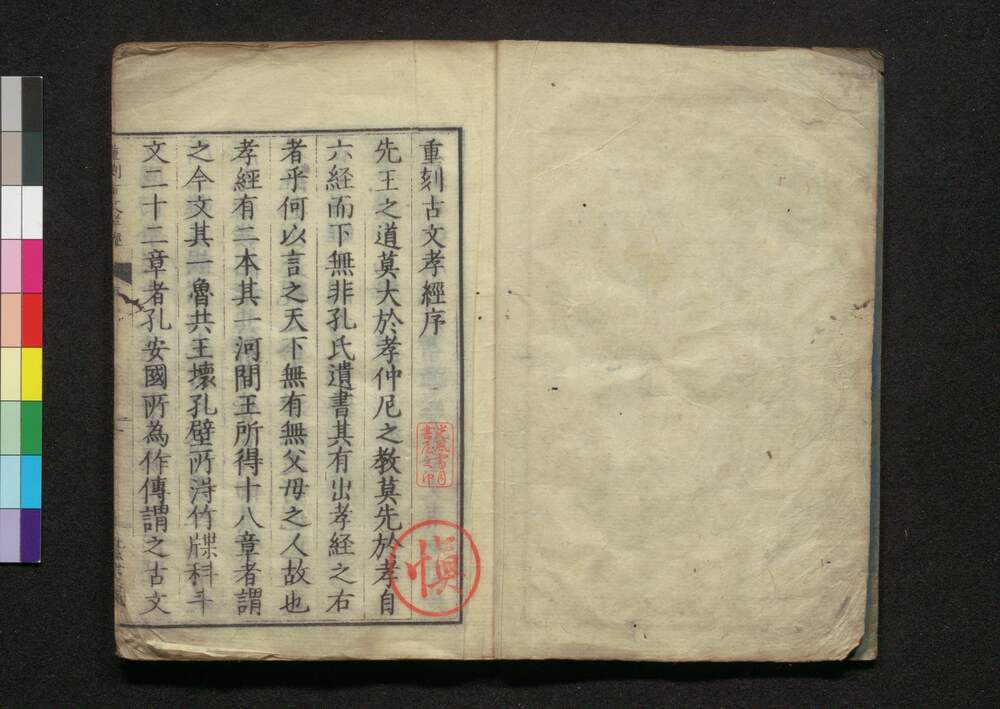 重刻古文孝經序
先王之道莫大於孝仲尼之教莫先於孝自
六経而下無非孔氏遺書其有出孝経之右
者乎何以言之天下無有無父毋之人故也
孝經有二本其一河間王所得十八章者謂
之今文其一魯共王壞孔壁所淂竹牒科斗
文二十二章者孔安國所為作傳謂之古文
慎